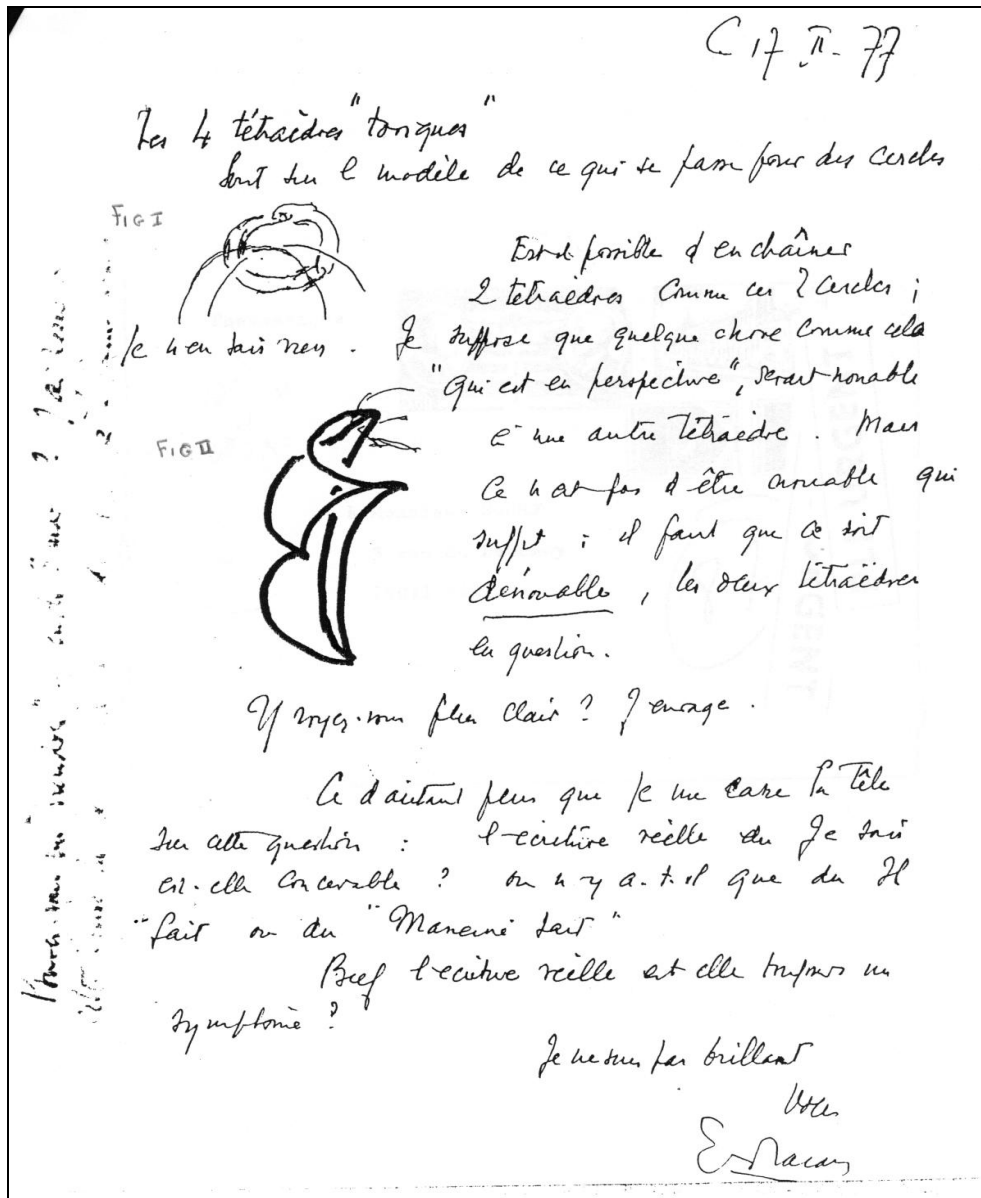 C 17 II. 77
Les 4 tétraèdres "toriques"
sont sur le modèle de ce qui se passe pour des cercles
FIG I
Est-il possible d'enchaîner
2 tétraèdres comme ces 2 cercles ;
Je n'en sais rien. Je suppose que quelque chose comme cela
"qui est en perspective", serait nouable
à une autre tétraèdre. Mais
FIG II
ce n'est pas d'être nouable qui
suffit ; il faut que ce soit
dénouable, les deux tétraèdres
en question.
Y voyez-vous plus clair ? J'enrage.
Ce d'autant plus que je me casse la tête
sur cette question : l'écriture réelle du Je sais
est-elle concevable ? ou n'y a-t-il que du Il
sait ou du " sait"
Bref l'écriture réelle est-elle toujours un
symptôme ?
Je ne suis pas brillant
Votre
Lacan